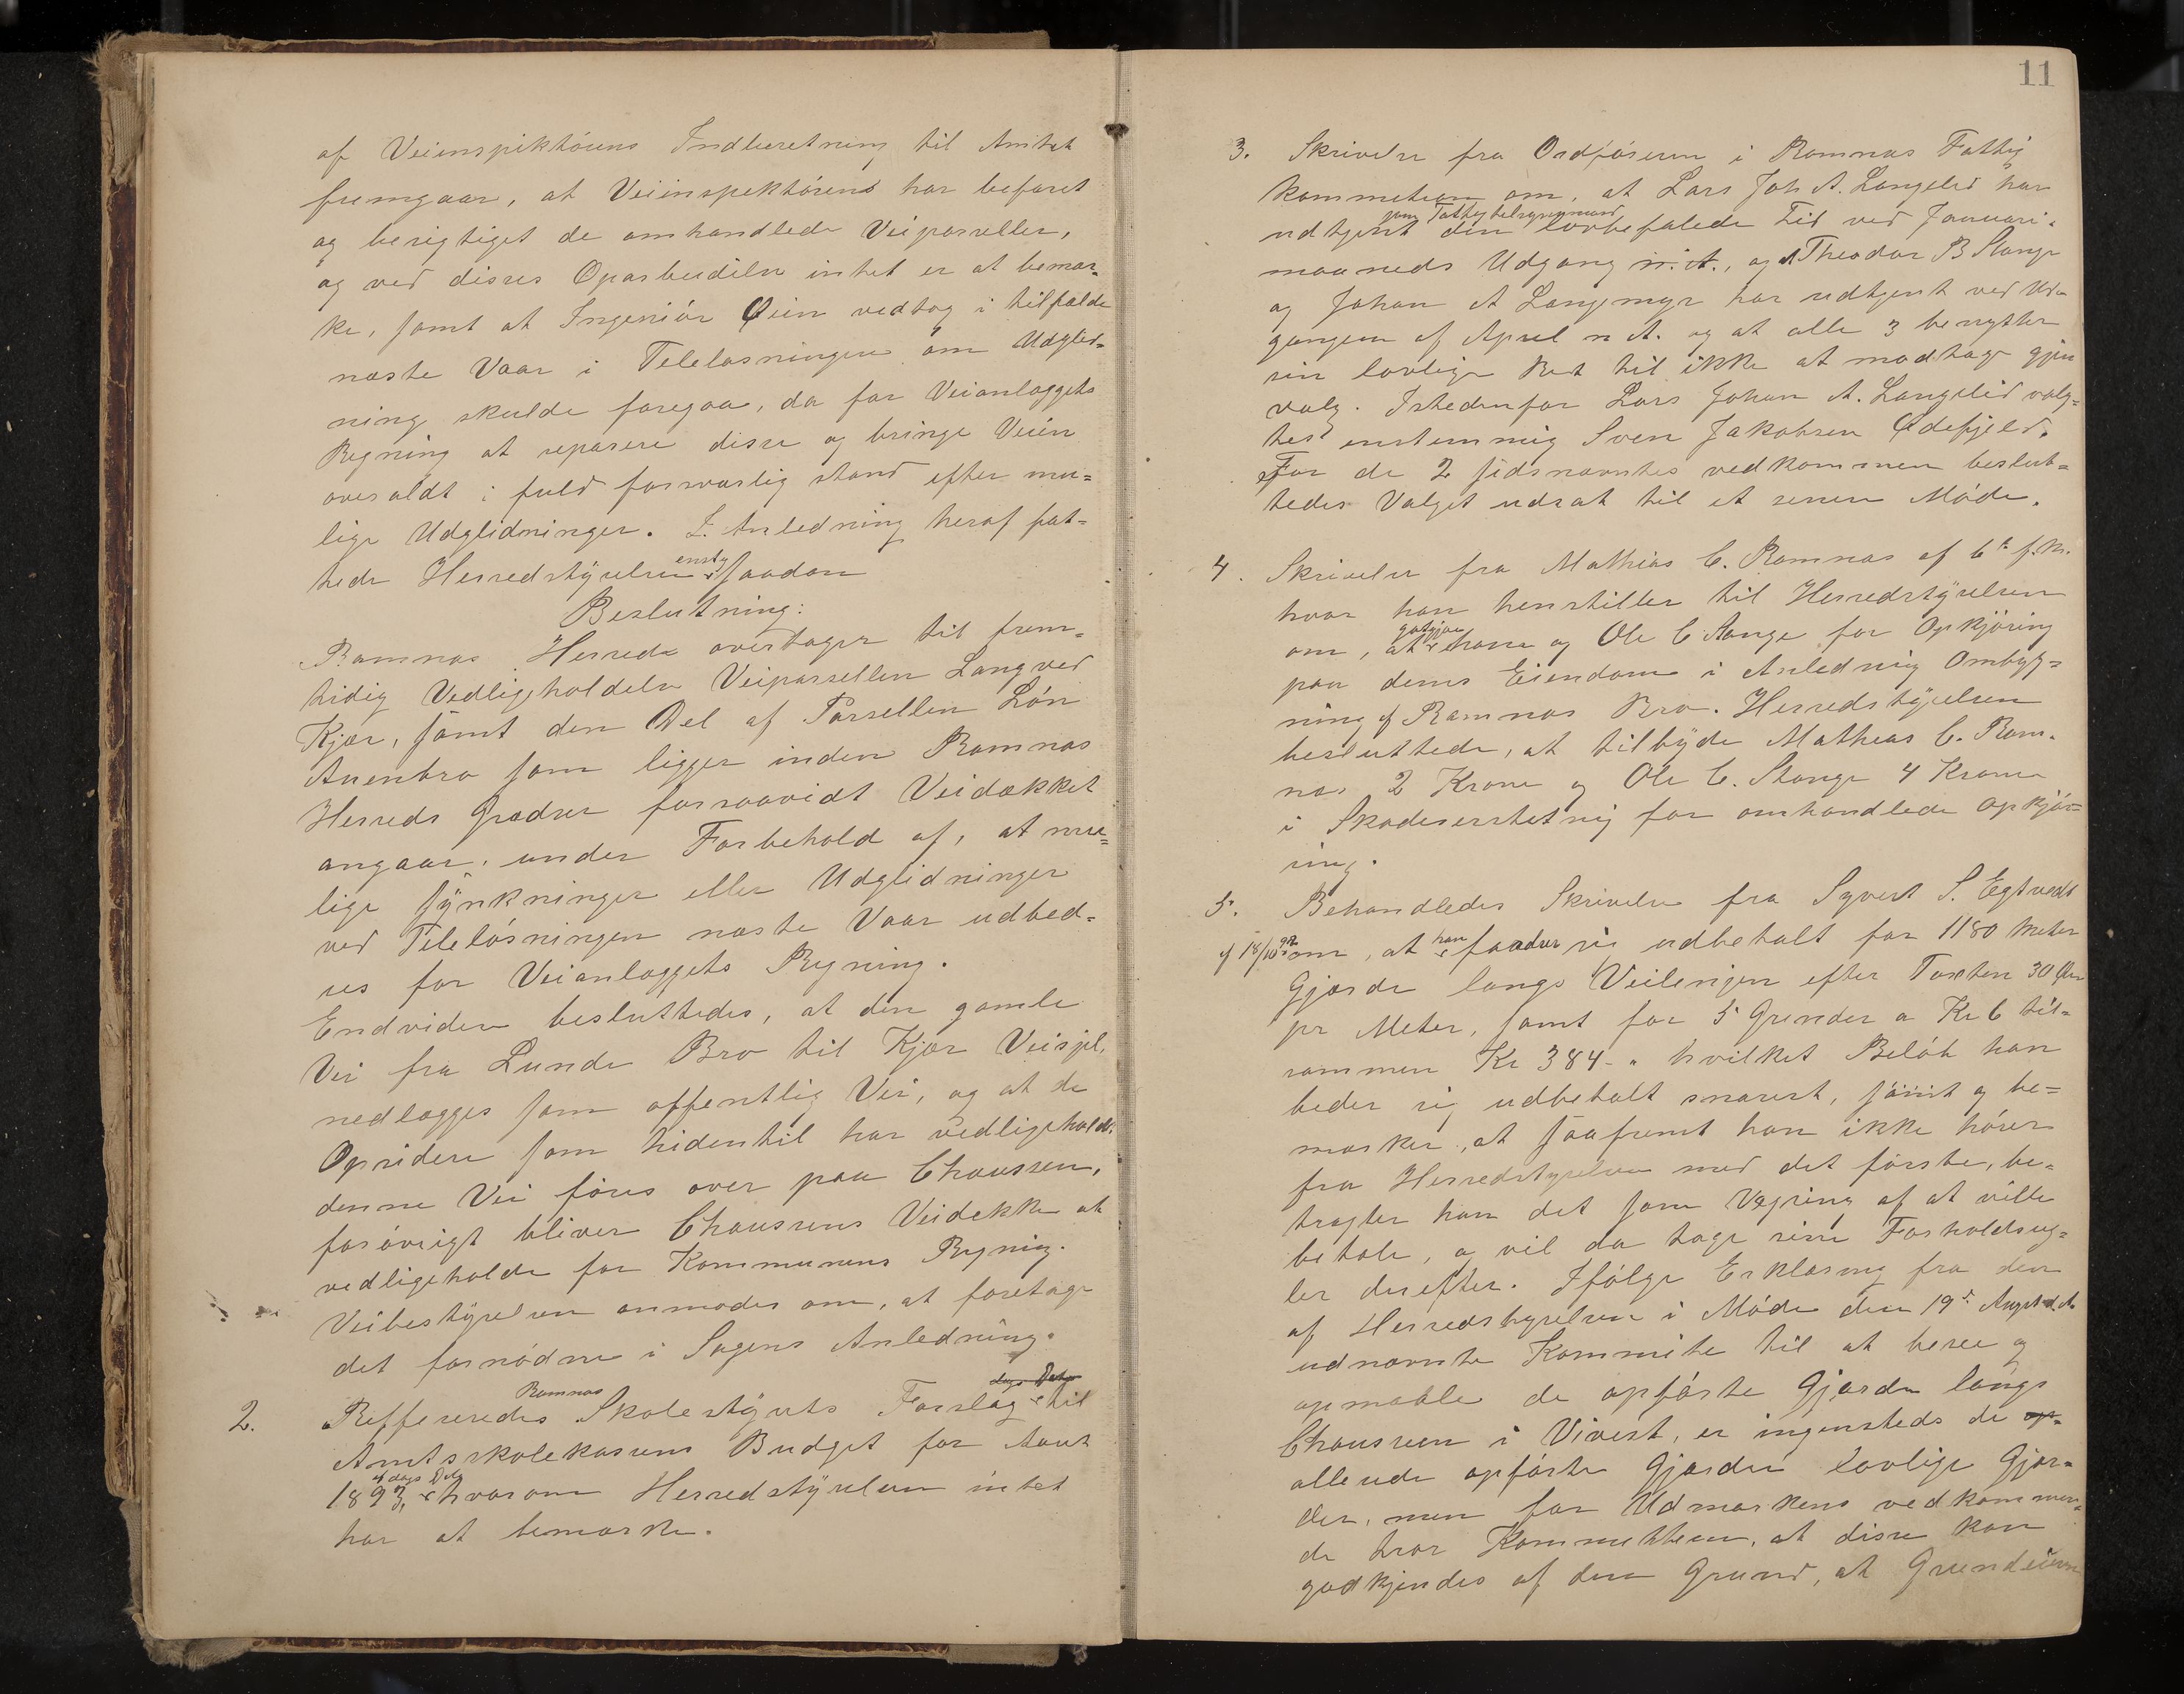 af Veiinspektörens Indberetning til Amtet
fremgaar, at Veiinspektörens har befaret
og besigtiget de omhandlede Veiparseller,
og ved disses Oparbeidelse intet er at bemær-
ke, samt at Ingeniör Øien vedtog i tilfælde
næste Vaar i Teleløsningen om Udglid-
ning skulde foregaa, da for Veianlæggets
Regning at reparere disse og bringe Veien
overaldt i fuld forsvarlig stand efter mu-
lige Udglidninger. I Anledning heraf fat-
tede Herredstÿrelsen enstg saadan
Beslutning:
Ramnæs Herrede overtager til frem-
tidig Vedligeholdelse Veiparsellen Langved
Kjær, samt den Del af Parsellen Lón
Auenbro som ligger inden Ramnæs
Herreds Grædser forsaavidt Veidækket
angaar, under Forbehold af, at mu-
lige sÿnkninger eller Udglidninger
ved Teleløsningen næste Vaar udbed-
res for Veianlæggets Regning.
Endvidere besluttedes, at den gamle
Vei fra Lunde Bro til Kjær Veiskjel
nedlægges som offentlig Vei, og at de
Opsidere som hidentil har vedligeholdt
denne Vei föres over paa Chausseen,
forøvrigt bliver Chausseens Veidekke at
vedligeholde for Kommunens Regning.
Veibestÿrelsen anmodes om, at foretage
det fornödne i Sagens Anledning.
2. Reffereredes Ramnæs Skolestÿrets Forslag til
Amtsskolekassens Budget for Aaret
1893, af dags Dato hvorom Herredstÿrelsen intet
har at bemærke.
11
3. Skrivelse fra Ordföreren i Ramnæs Fattig
kommetion om, at Lars Joh A. Langelid har
udtjent som Fattigtilsynsmand den lovbefalede Tid ved Januari-
maaneds Udgang n. A., og at Theodor B Stange
og Johan A Langemyr har udtjent ved Ud-
gangen af April n A. og at alle 3 benytter
sin lovlige Ret til ikke at modtage gjen
valg. Istedenfor Lars Johan A. Langelid valg-
tes enstemmig Sven Jakobsen Ødefjeld.
For de 2 sidsnævntes vedkommen beslut-
tedes Valget udsat til et senere Möde.
4. Skrivelse fra Mathias C. Ramnæs af 6te f.M.
hvor han henstiller til Herredstÿrelsen
om, at godtgjøre ham og Ole C Stange for Opkjöring
paa deres Eiendom i Anledning Ombyg-
ning af Ramnæs Bro. Herredstÿrelsen
besluttede, at tilbÿde Mathias C. Ram-
næs 2 Kroner og Ole C. Stange 4 Kroner
i Skadeserstatnig for omhandlede opkjör-
ing.
5. Behandledes Skrivelse fra Syvert S. Egtvedt
af 18/10 92 om, at han faar sig udbetalt for 1180 Meter
Gjærde langs Veilinjen efter Taxten 30 Øre
pr Meter, samt for 5 Grinder a Kr 6 til-
sammen Kr 384 - " hvilket Beløb han
beder sig udbetalt snarest, sámt og be-
mærker, at saafremt han ikke hórer
fra Herredstyrelsen med det förste, be-
tragter han det som Vægring af at ville
betale, og vil da tage sine Forholdsreg-
ler derefter. Ifölge Erklæring fra den
af Herredstyrelsen i Möde den 19de August d.A.
udnævnte Kommite til at besee og
opmaale de opförte Gjærde langs
Chausseen i Vivest, er ingensteds de
allerede opförte Gjærder lovlige Gjær-
der, men for Udmarkens vedkommen-
de tror Kommitteen, at disse kan
godkjendes af den Grund, at Grundeieren